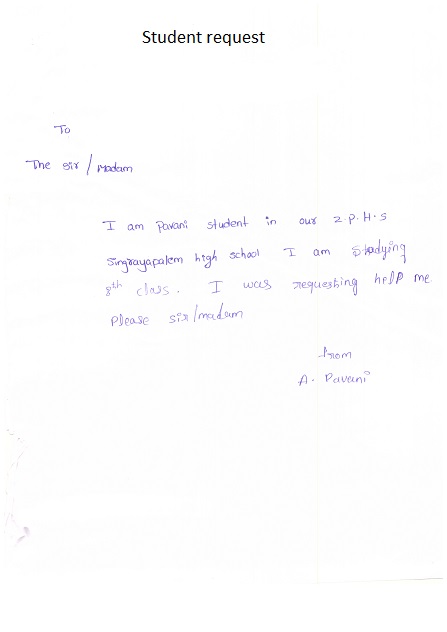 Student request
To
The sir/Madam
I am pavani student in our Z.P.H.S
Singrayapalem high school I am Studying
8th class. I was requesting help me
Please sir/madam
from
A. Pavani